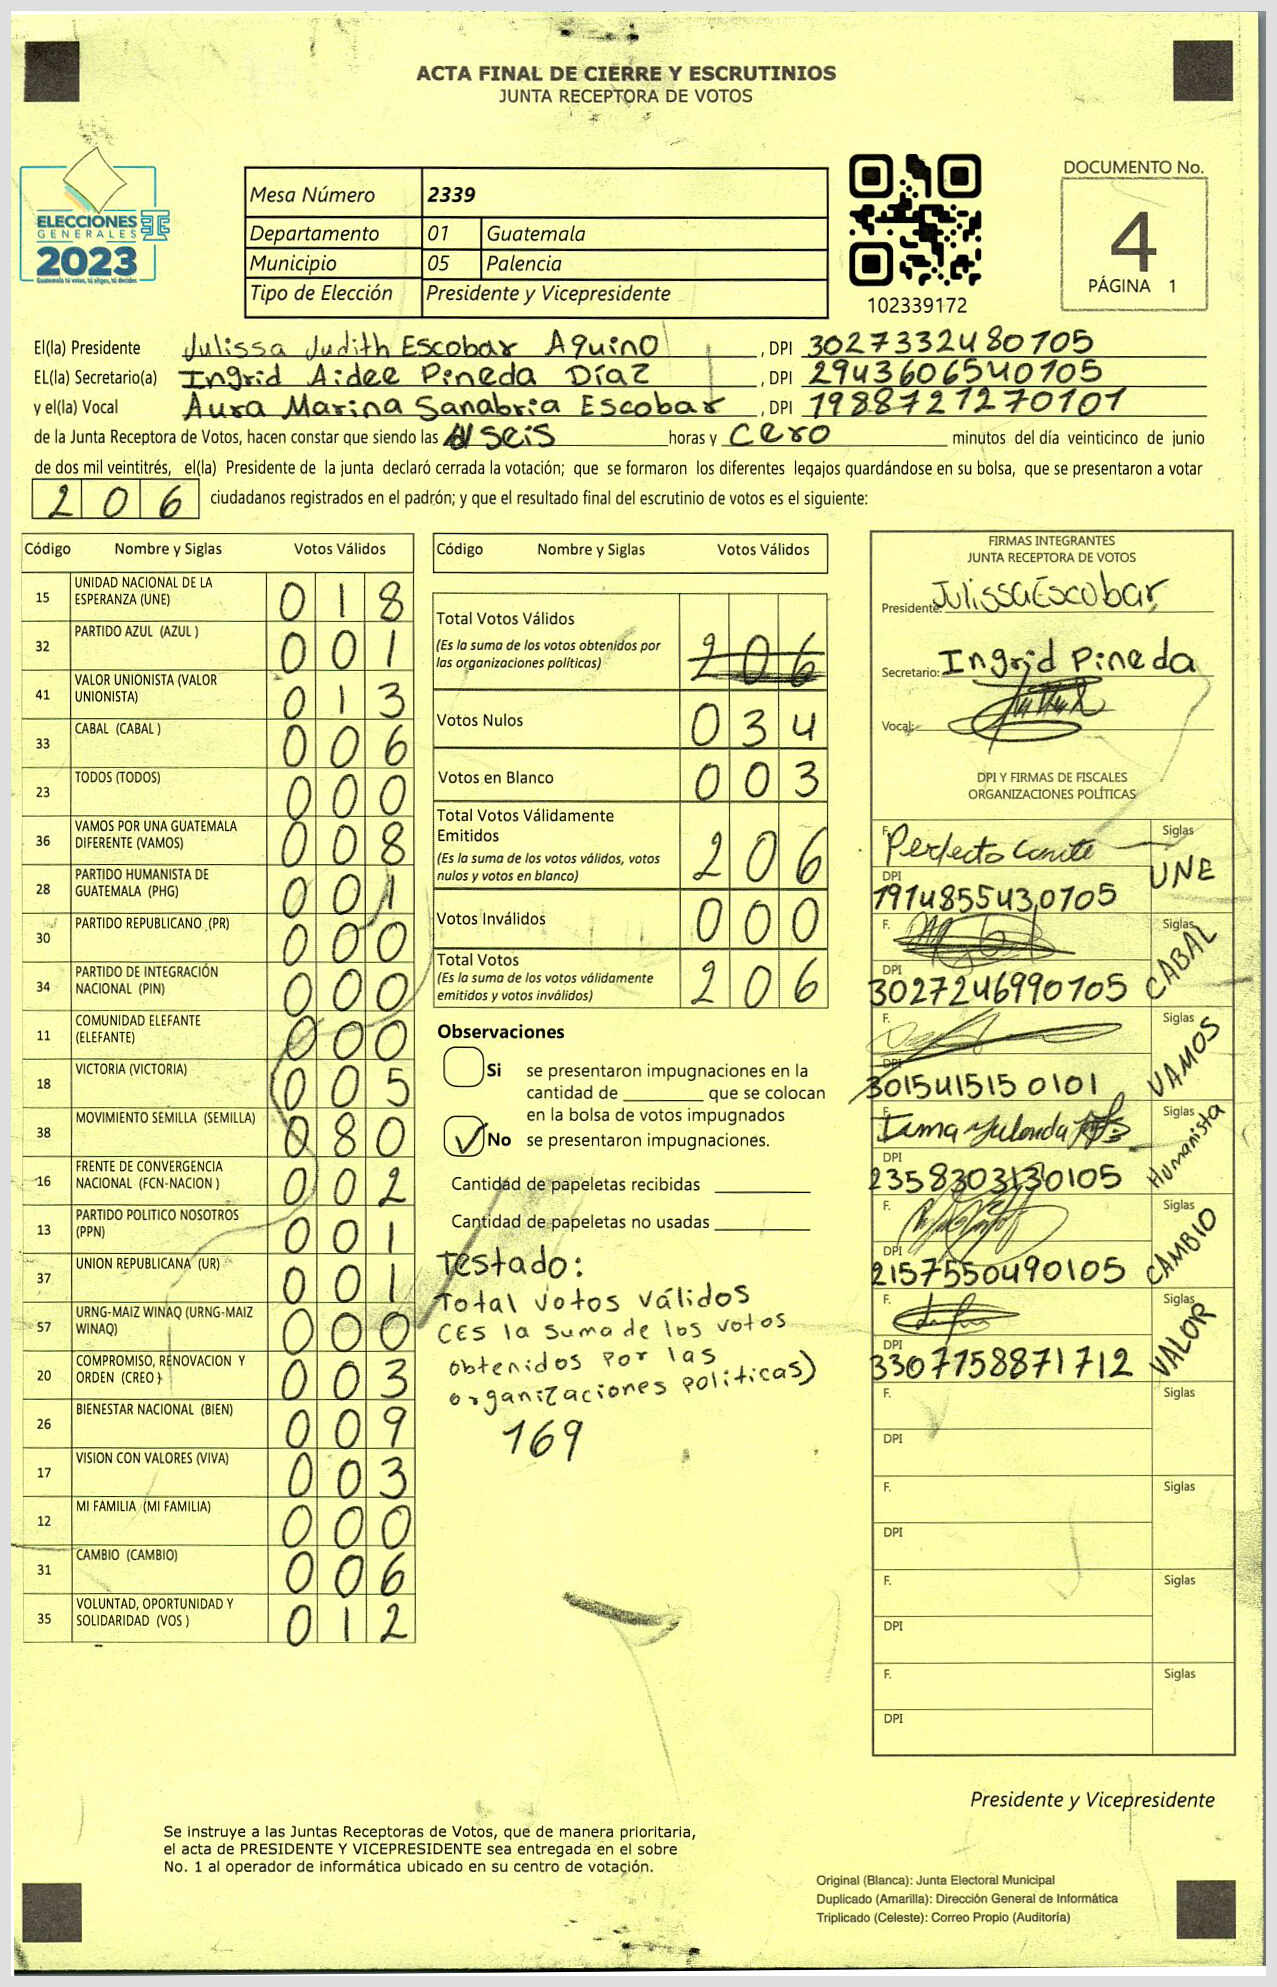 ACTA FINAL DE CIERRE Y ESCRUTINIOS
JUNTA RECEPTORA DE VOTOS
ELECCIONES
GENERALES
2023
Guatemala tú votas, tú eliges, tú decides
Mesa Número 2339
Departamento 01 Guatemala
Municipio 05 Palencia
Tipo de Elección Presidente y Vicepresidente
102339172
DOCUMENTO No.
4
PÁGINA 1
El(la) Presidente Julissa Judith Escobar Aquino, DPI 3027332480705
EL(la) Secretario(a) Ingrid Aidee Pineda Díaz, DPI 2943606540705
y el(la) Vocal Aura Marina Sanabria Escobar, DPI 1988721270101
de la Junta Receptora de Votos, hacen constar que siendo las seis horas y cero minutos del día veinticinco de junio
de dos mil veintitrés, el(la) Presidente de la junta declaró cerrada la votación; que se formaron los diferentes legajos guardándose en su bolsa, que se presentaron a votar
206 ciudadanos registrados en el padrón; y que el resultado final del escrutinio de votos es el siguiente:
Código Nombre y Siglas Votos Válidos
15 UNIDAD NACIONAL DE LA ESPERANZA (UNE) 018
32 PARTIDO AZUL (AZUL ) 001
41 VALOR UNIONISTA (VALOR UNIONISTA) 013
33 CABAL (CABAL ) 006
23 TODOS (TODOS) 000
36 VAMOS POR UNA GUATEMALA DIFERENTE (VAMOS) 008
28 PARTIDO HUMANISTA DE GUATEMALA (PHG) 001
30 PARTIDO REPUBLICANO (PR) 000
34 PARTIDO DE INTEGRACIÓN NACIONAL (PIN) 000
11 COMUNIDAD ELEFANTE (ELEFANTE) 000
18 VICTORIA (VICTORIA) 005
38 MOVIMIENTO SEMILLA (SEMILLA) 080
16 FRENTE DE CONVERGENCIA NACIONAL (FCN-NACION ) 002
13 PARTIDO POLITICO NOSOTROS (PPN) 001
37 UNION REPUBLICANA (UR) 001
57 URNG-MAIZ WINAQ (URNG-MAIZ WINAQ) 000
20 COMPROMISO, RENOVACION Y ORDEN (CREO ) 003
26 BIENESTAR NACIONAL (BIEN) 009
17 VISION CON VALORES (VIVA) 003
12 MI FAMILIA (MI FAMILIA) 000
31 CAMBIO (CAMBIO) 006
35 VOLUNTAD, OPORTUNIDAD Y SOLIDARIDAD (VOS ) 012
Código Nombre y Siglas Votos Válidos
Total Votos Válidos
(Es la suma de los votos obtenidos por
las organizaciones políticas) 206
Votos Nulos 034
Votos en Blanco 003
Total Votos Válidamente
Emitidos
(Es la suma de los votos válidos, votos
nulos y votos en blanco) 206
Votos Inválidos 000
Total Votos
(Es la suma de los votos válidamente
emitidos y votos inválidos) 206
Observaciones
Si se presentaron impugnaciones en la
cantidad de ________ que se colocan
en la bolsa de votos impugnados
No se presentaron impugnaciones.
Cantidad de papeletas recibidas
Cantidad de papeletas no usadas
Testado:
Total votos válidos
CES la suma de los votos
obtenidos por las
organizaciones políticas)
169
FIRMAS INTEGRANTES
JUNTA RECEPTORA DE VOTOS
Presidente: Julissa Escobar
Secretario: Ingrid Pineda
Vocal:
DPI Y FIRMAS DE FISCALES
ORGANIZACIONES POLÍTICAS
F. Perfecto Siglas
DPI 1914855430705 UNE
F. Siglas
DPI 3027246990705 CABAL
F. Siglas
DPI 3015415150101 VAMOS
F. Siglas
DPI 2358303130105 Humanista
F. Siglas
DPI 2157550490105 CAMBIO
F. Siglas
DPI 3307758871712 VALOR
F. Siglas
DPI
F. Siglas
DPI
F. Siglas
DPI
F. Siglas
DPI
Presidente y Vicepresidente
Se instruye a las Juntas Receptoras de Votos, que de manera prioritaria,
el acta de PRESIDENTE Y VICEPRESIDENTE sea entregada en el sobre
No. 1 al operador de informática ubicado en su centro de votación.
Original (Blanca): Junta Electoral Municipal
Duplicado (Amarilla): Dirección General de Informática
Triplicado (Celeste): Correo Propio (Auditoría)